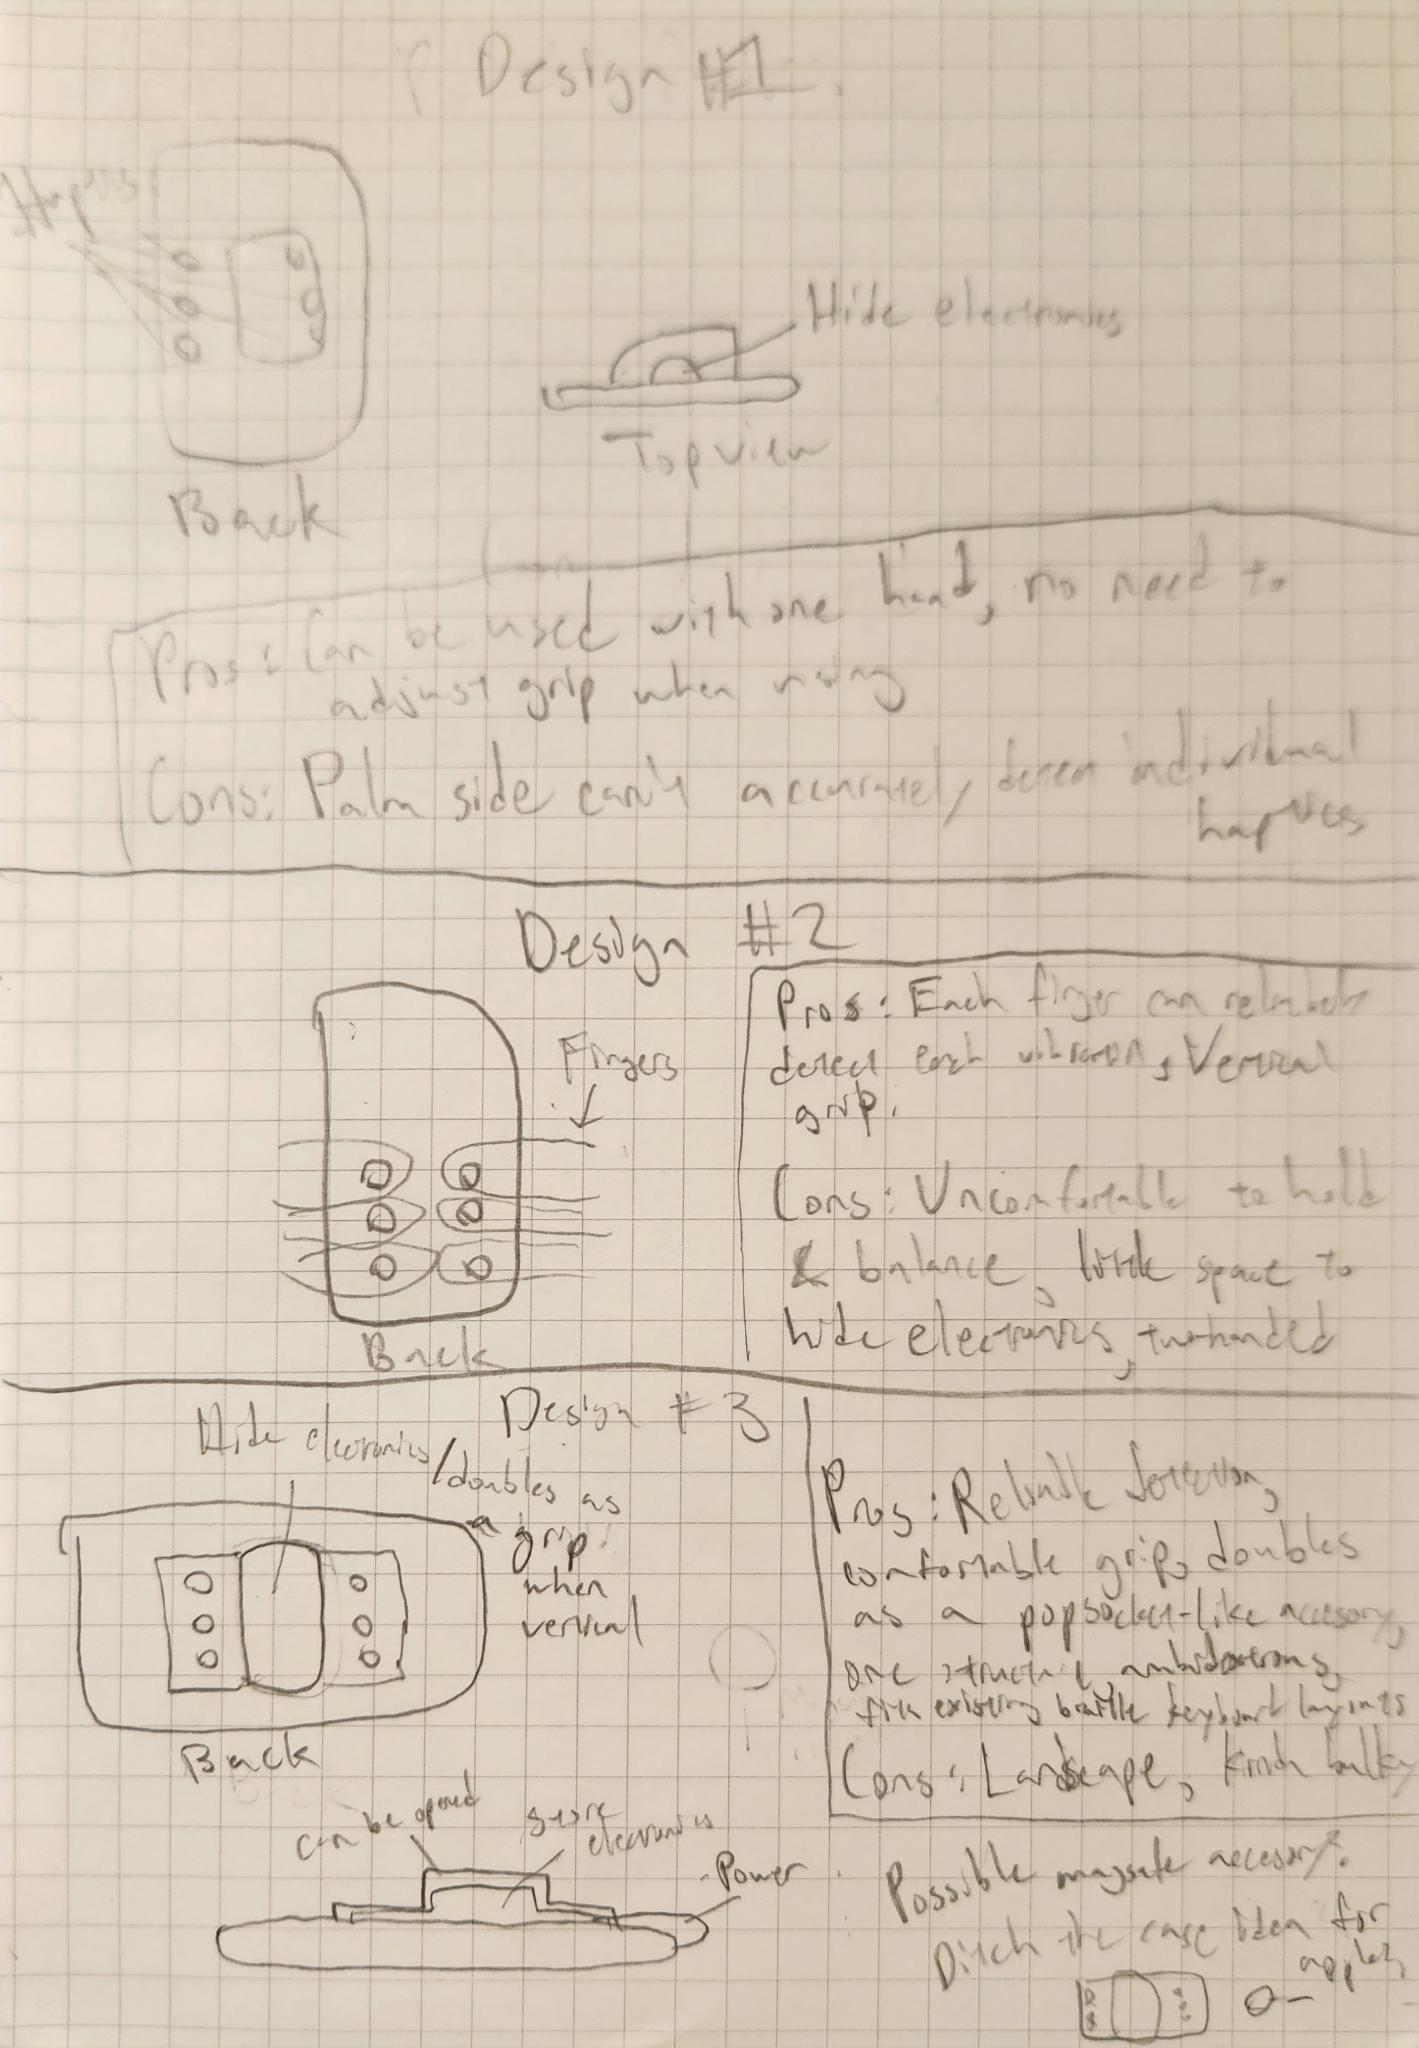 Design #1
Haptics
Hide electronics
Top view
Back
Pros: Can be used with one hand, no need to
adjust grip when using
Cons: Palm side can't accurately detect individual
haptics
Design #2
Fingers
Back
Pros: Each finger can reliably
detect each vibration, Vertical
grip.
Cons: Uncomfortable to hold
& balance, little space to
hide electronics, two-handed
Design #3
Hide electronics/doubles as
a grip
when
vertical
Back
Pros: Reliable detection,
comfortable grip, doubles
as a popsocket-like accesory,
one structure, ambidextrous,
existing braille keyboard layouts
Cons: Landscape, kinda bulky
can be opened
store
electronics
Power
Possible magsafe accesory?
Ditch the case idea for
apple?